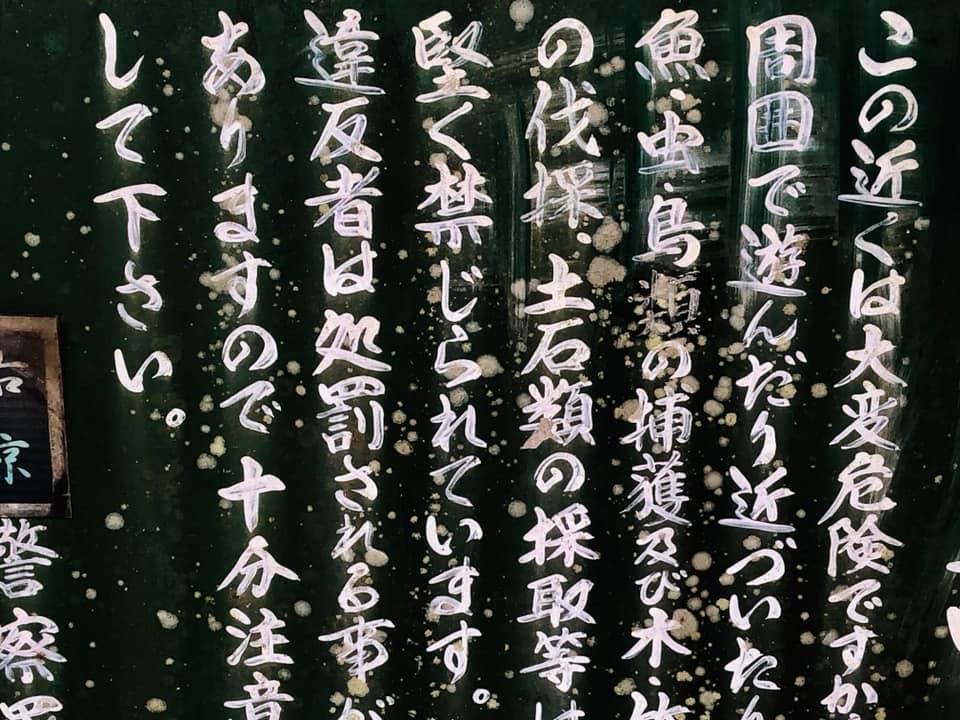 この近くは大変危険ですか
周囲で遊んだり近づいたり
魚・虫・鳥類の捕獲及び木・竹
の伐採。土石類の採取等は
堅く禁じられています。
違反者は処罰される事が
ありますので十分注意
して下さい。
京
警察署